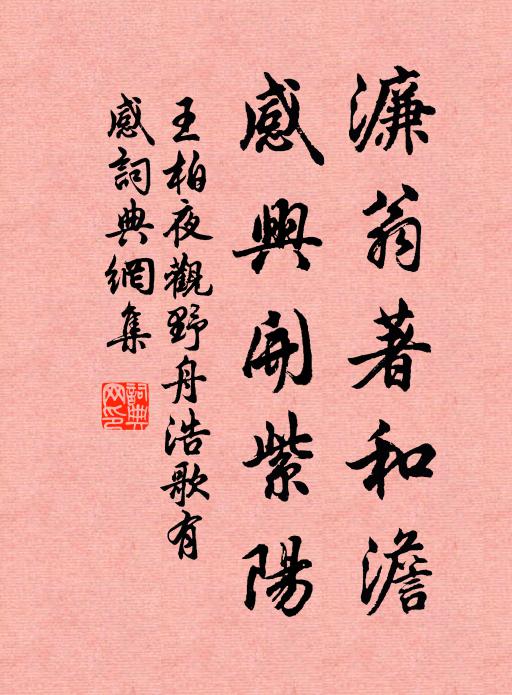 濂翁著和澹
感興開紫陽
王柏夜觀野舟浩歌有
感詞典網集
詞典網印